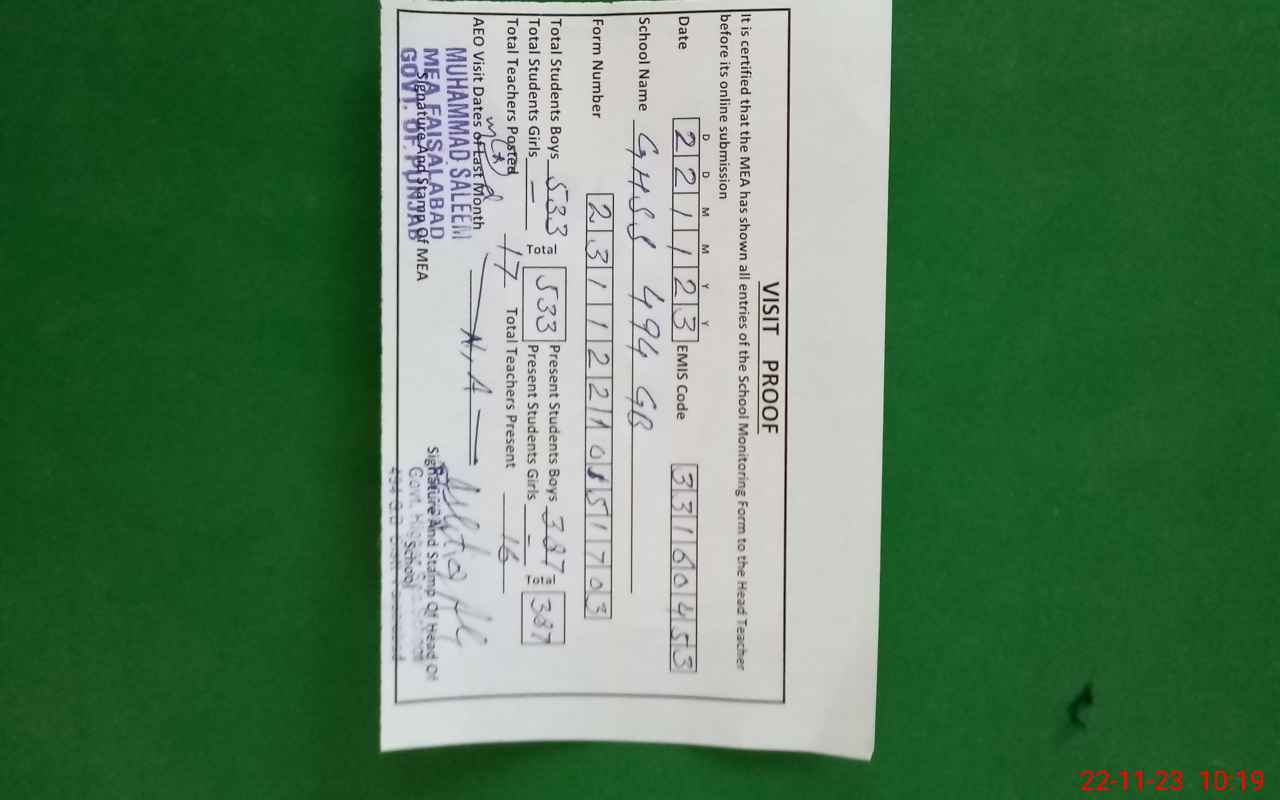 VISIT PROOF
It is certified that the MEA has shown all entries of the School Monitoring Form to the Head Teacher
before its online submission
D D M M Y Y
Date 2 2 1 1 2 3 EMIS Code 3 3 1 6 0 4 5 3
School Name GHSS 494 GB
Form Number 2 3 1 1 2 2 1 0 1 5 1 7 0 3
Total Students Boys 533 Total 533 Present Students Boys 387 387
Total Students Girls — Present Students Girls -
Total Teachers Posted 17 Total Teachers Present 16
AEO Visit Dates of Last Month — N.A —
MUHAMMAD SALEEM
MEA FAISALABAD
GOVT. OF PUNJAB
Signature And Stamp Of MEA
Signature And Stamp Of Head Of
School
Govt.
494 G.B
22-11-23 10:19